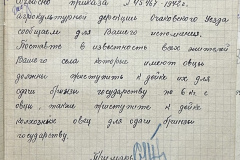 Согласно приказа № 45467 - 1942 г.
агрокультурной дирекции Очаковского Уезда
сообщаем для Вашего исполнения.
Поставте в известность всех жителей
Вашего села которые имеют овцы
должны приступить к дойке их для
сдачи брынзы государству по 6 кг с
овцы, также приступите к дойке
колхозных овец для сдачи брынзы
государству.
Примарь